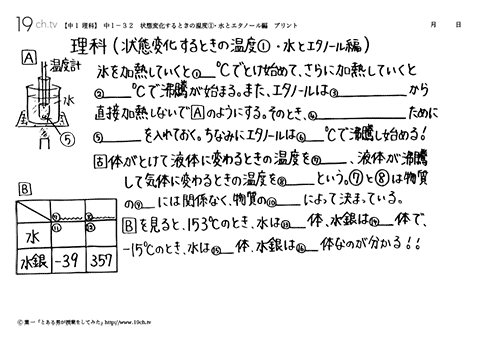 19ch.tv 【中1 理科】 中1-32 状態変化するときの温度①・水とエタノール編 プリント 月 日
理科(状態変化するときの温度①・水とエタノール編)
A
温度計
水
⑤
氷を加熱していくと①__℃でとけ始めて、さらに加熱していくと
②____℃で沸騰が始まる。また、エタノールは③________から
直接加熱しないでAのようにする。そのとき、④________ために
⑤______を入れておく。ちなみにエタノールは⑥__℃で沸騰し始める!
固体がとけて液体に変わるときの温度を⑦____、液体が沸騰
して気体に変わるときの温度を⑧____という。⑦と⑧は物質
の⑨__には関係なく、物質の⑩____によって決まっている。
Bを見ると、153℃のとき、水は⑬__体、水銀は⑭__体で、
-15℃のとき、水は⑮__体、水銀は⑯__体なのが分かる!!
B
⑦ ⑧
水 ⑪ ⑫
水銀 -39 357
Ⓒ 葉一「とある男が授業をしてみた」http://www.19ch.tv